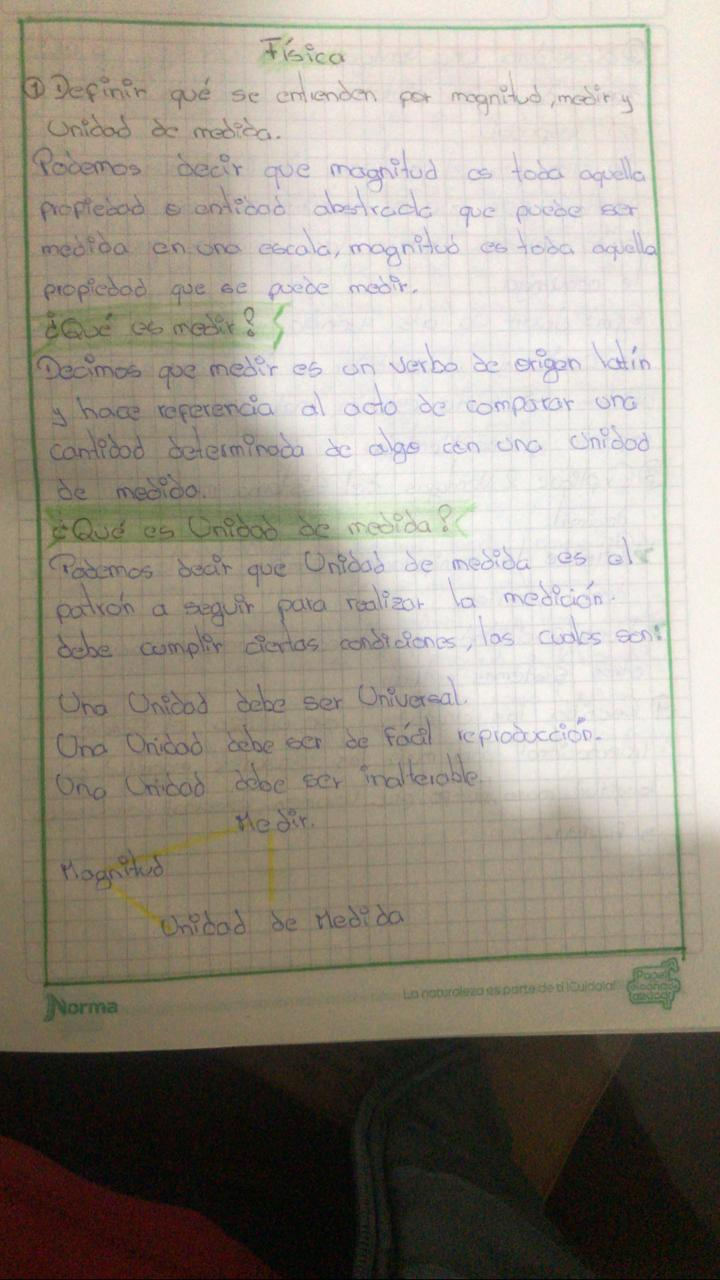 Física
① Definir qué se entienden por magnitud, medir y
Unidad de medida.
Podemos decir que magnitud es toda aquella
propiedad o entidad abstracta que puede ser
medida en una escala, magnitud es toda aquella
propiedad que se puede medir.
¿Qué es medir?
Decimos que medir es un verbo de origen latín
y hace referencia al acto de comparar una
cantidad determinada de algo con una Unidad
de medida.
¿Qué es Unidad de medida?
Podemos decir que Unidad de medida es el
patrón a seguir para realizar la medición.
debe cumplir ciertas condiciones, las cuales son:
Una Unidad debe ser Universal.
Una Unidad debe ser de fácil reproducción.
Una Unidad debe ser inalterable.
Medir.
Magnitud
Unidad de Medida
Norma
La naturaleza es parte de ti ¡Cuídala!